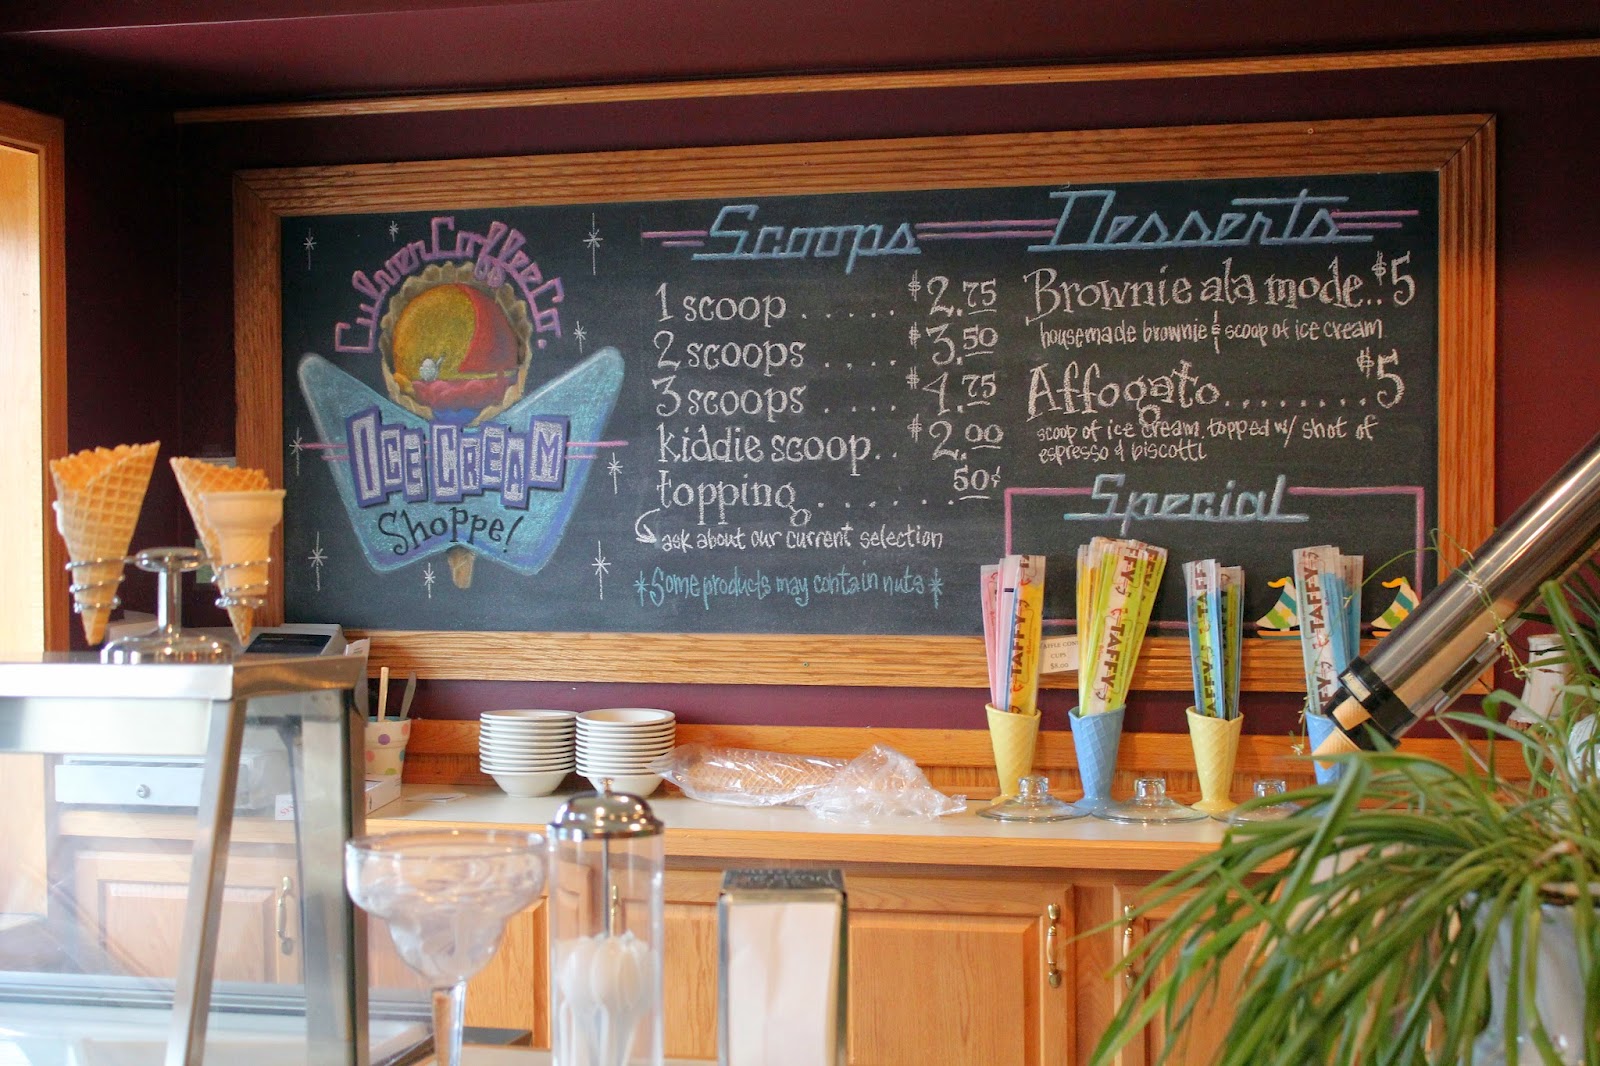 Culver Coffee Co.
ICE CREAM
Shoppe!
Scoops
1 scoop ..... $2.75
2 scoops .... $3.50
3 scoops .... $4.75
kiddie scoop.. $2.00
topping....... 50¢
ask about our current selection
*Some products may contain nuts*
Desserts
Brownie ala mode.. $5
housemade brownie & scoop of ice cream
Affogato........ $5
scoop of ice cream topped w/ shot of
espresso & biscotti
Special
TAFFY
TAFFY
TAFFY
TAFFY
CUPS
$8.00